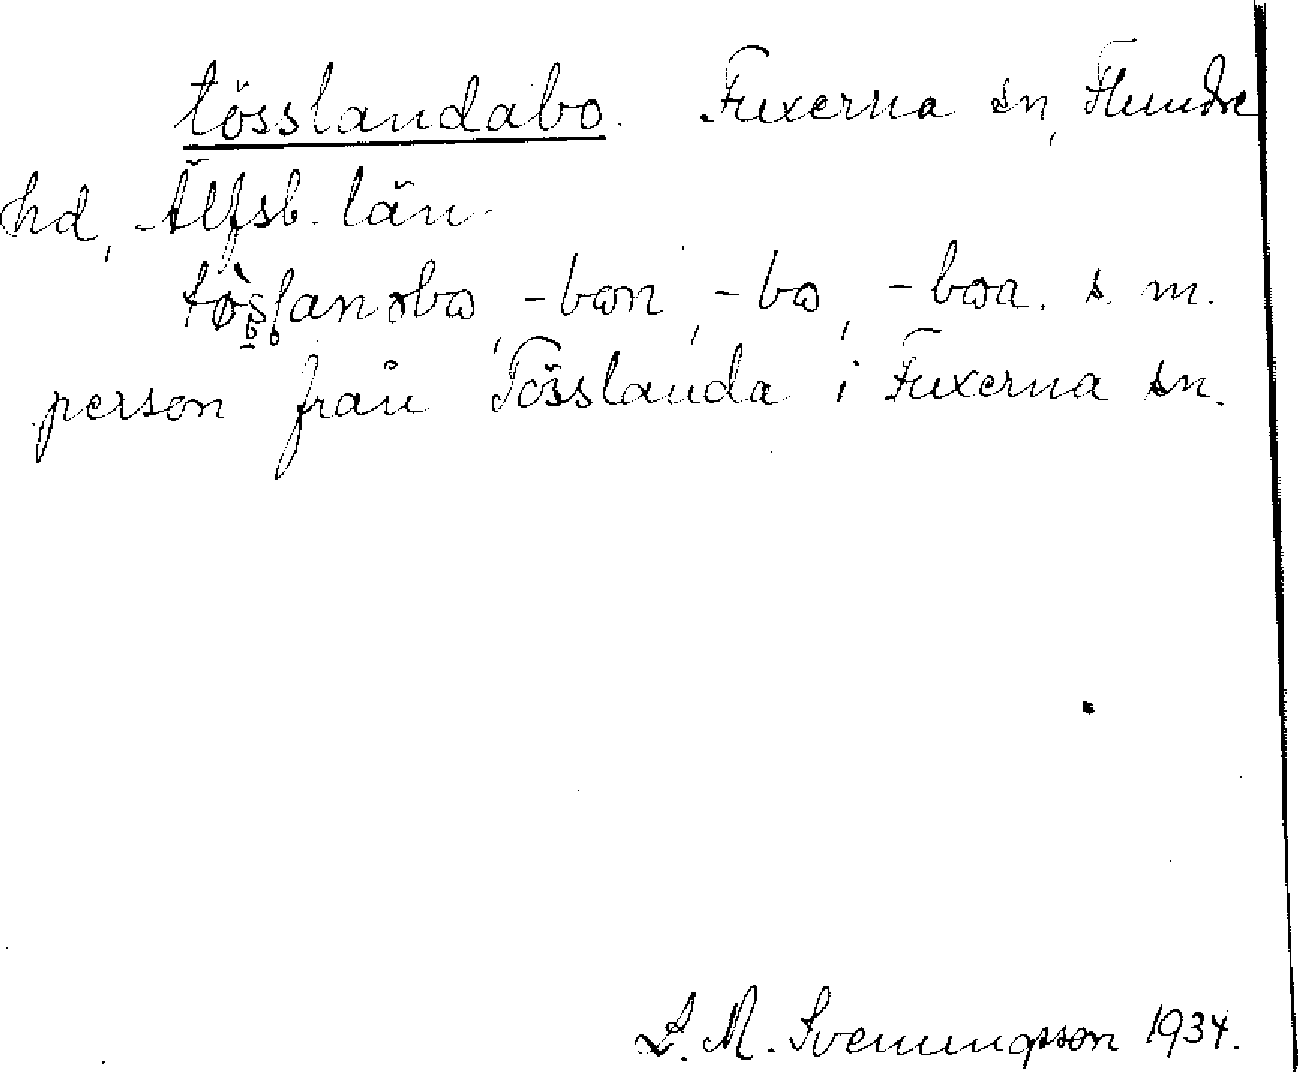 tösslandabo. Fuxerna sn, Flundre
hd, Älfsb. län.
-bon, -bo, -boa. s. m.
person från Tösslanda i Fuxerna sn.
L. M. Svenungsson 1934.